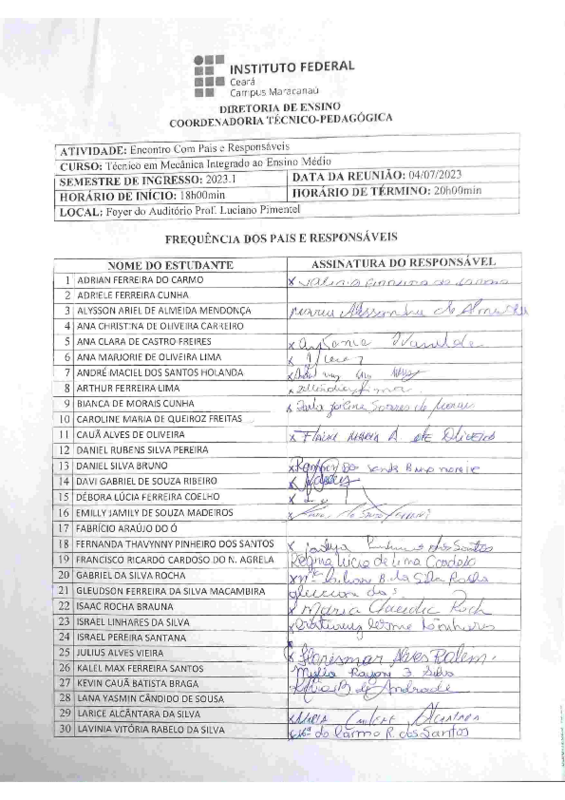 INSTITUTO FEDERAL
Ceará
Campus Maracanaú
DIRETORIA DE ENSINO
COORDENADORIA TÉCNICO-PEDAGÓGICA
ATIVIDADE: Encontro Com Pais e Responsáveis
CURSO: Técnico em Mecânica Integrado ao Ensino Médio
SEMESTRE DE INGRESSO: 2023.1 DATA DA REUNIÃO: 04/07/2023
HORÁRIO DE INÍCIO: 18h00min HORÁRIO DE TÉRMINO: 20h00min
LOCAL: Foyer do Auditório Prof. Luciano Pimentel
FREQUÊNCIA DOS PAIS E RESPONSÁVEIS
NOME DO ESTUDANTE ASSINATURA DO RESPONSÁVEL
1 ADRIAN FERREIRA DO CARMO x
2 ADRIELE FERREIRA CUNHA
3 ALYSSON ARIEL DE ALMEIDA MENDONÇA Alessandra de Almeida
4 ANA CHRISTINA DE OLIVEIRA CARREIRO
5 ANA CLARA DE CASTRO FREIRES x Antonia
6 ANA MARJORIE DE OLIVEIRA LIMA x
7 ANDRÉ MACIEL DOS SANTOS HOLANDA x
8 ARTHUR FERREIRA LIMA x
9 BIANCA DE MORAIS CUNHA x Soares de Morais
10 CAROLINE MARIA DE QUEIROZ FREITAS
11 CAUÃ ALVES DE OLIVEIRA x Maria A de Oliveira
12 DANIEL RUBENS SILVA PEREIRA
13 DANIEL SILVA BRUNO x Bruno
14 DAVI GABRIEL DE SOUZA RIBEIRO x
15 DÉBORA LÚCIA FERREIRA COELHO x
16 EMILLY JAMILY DE SOUZA MADEIROS x
17 FABRÍCIO ARAÚJO DO Ó
18 FERNANDA THAVYNNY PINHEIRO DOS SANTOS x Pinheiro dos Santos
19 FRANCISCO RICARDO CARDOSO DO N. AGRELA Regina Lúcia de Lima Cardoso
20 GABRIEL DA SILVA ROCHA x Mª B. da Silva Rocha
21 GLEUDSON FERREIRA DA SILVA MACAMBIRA
22 ISAAC ROCHA BRAUNA x Maria Claudia Roch
23 ISRAEL LINHARES DA SILVA x Linhares
24 ISRAEL PEREIRA SANTANA
25 JULIUS ALVES VIEIRA x Florismar Alves
26 KALEL MAX FERREIRA SANTOS Silva
27 KEVIN CAUÃ BATISTA BRAGA B de Andrade
28 LANA YASMIN CÂNDIDO DE SOUSA
29 LARICE ALCÂNTARA DA SILVA x Maria Alcantara
30 LAVINIA VITÓRIA RABELO DA SILVA x Mª do Carmo R. dos Santos